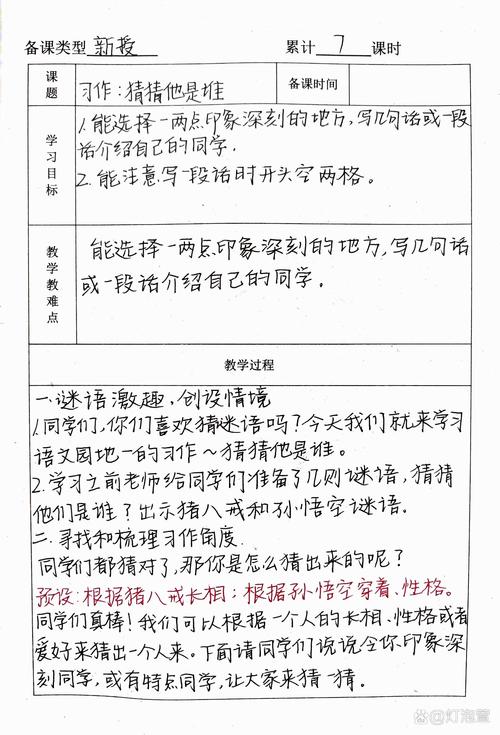 备课类型 新授 累计 7 课时
课题 习作：猜猜他是谁 备课时间
学习目标
1.能选择一两点印象深刻的地方,写几句话或一段
话介绍自己的同学.
2.能注意写一段话时开头空两格。
教学教难点
能选择一两点印象深刻的地方,写几句话
或一段话介绍自己的同学.
教学过程
一.谜语激趣,创设情境
1.同学们,你们喜欢猜迷语吗?今天我们就来学习
语文园地一的习作~猜猜他是谁.
2.学习之前老师给同学们准备了几则谜语,猜猜
他们是谁?出示猪八戒和孙悟空谜语.
二.寻找和梳理习作角度.
同学们都猜对了,那你是怎么猜出来的呢?
预设:根据猪八戒长相;根据孙悟空穿着、性格。
同学们真棒!我们可以根据一个人的长相、性格或者
爱好来猜出一个人来。下面请同学们说说令你印象深
刻同学,或有特点同学,让大家来猜一猜.
@灯泡萱